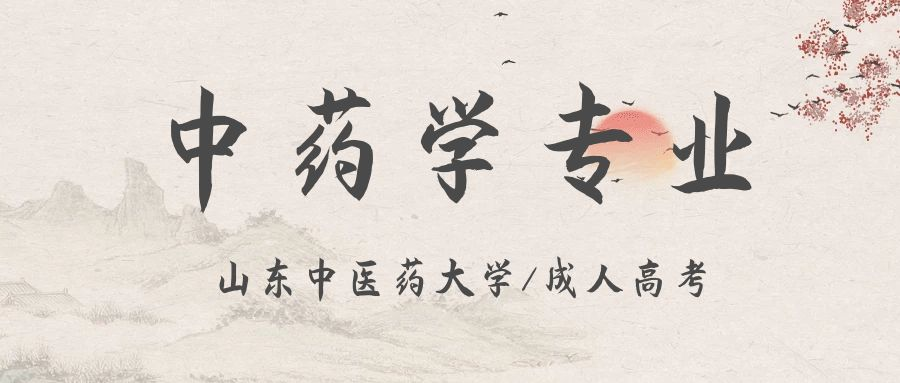 中药学专业
山东中医药大学/成人高考